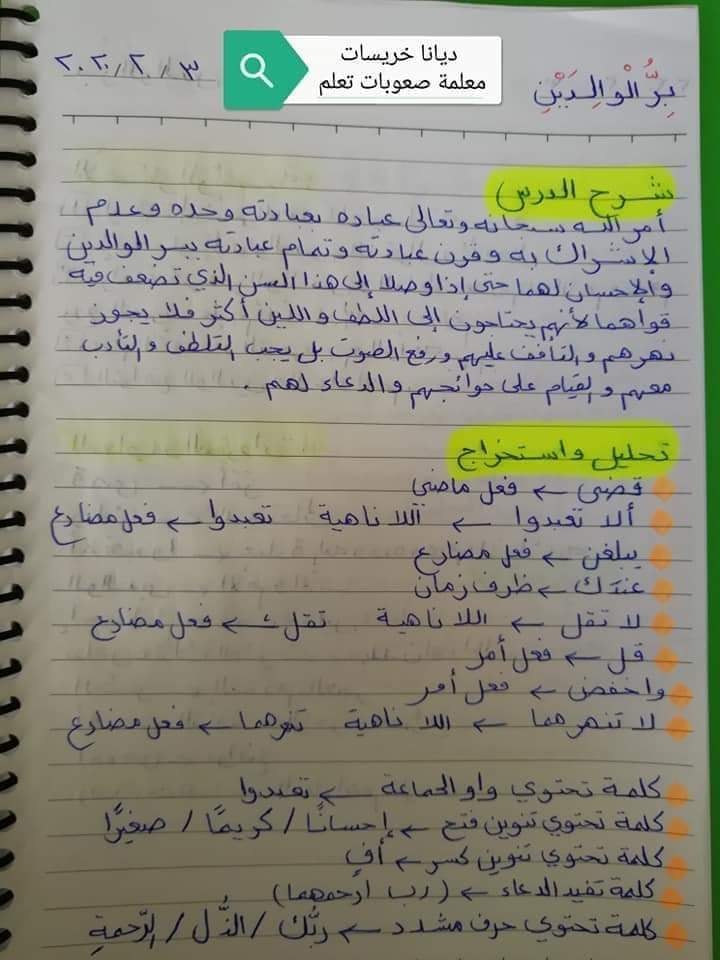 ديانا خريسات
معلمة صعوبات تعلم
٢٠٢٠/٢/٣
بِرُّ الْوَالِدَيْنِ
شرح الدرس
أمر الله سبحانه وتعالى عباده بعبادته وحده وعدم
الإشراك به وقرن عبادته وتمام عبادته ببر الوالدين
والإحسان لهما حتى إذا وصلا إلى هذا السن الذي تضعف فيه
قواهما لأنهم يحتاجون إلى اللطف واللين أكثر فلا يجوز
نهرهم والتأفف عليهم ورفع الصوت بل يجب التلطف والتأدب
معهم والقيام على حوائجهم والدعاء لهم .
تحليل واستخراج
قضى ← فعل ماضي
ألا تعبدوا ← اللا ناهية تعبدوا ← فعل مضارع
يبلغن ← فعل مضارع
عندك ← ظرف زمان
لا تقل ← اللا ناهية تقل ← فعل مضارع
قل ← فعل أمر
واخفض ← فعل أمر
لا تنهرهما ← اللا ناهية تنهرهما ← فعل مضارع
كلمة تحتوي واو الجماعة ← تعبدوا
كلمة تحتوي تنوين فتح ← إحسانًا / كريمًا / صغيرًا
كلمة تحتوي تنوين كسر ← أفٍ
كلمة تفيد الدعاء ← (رب ارحمهما)
كلمة تحتوي حرف مشدد ← ربُّك / الذُّل / الرَّحمةِ